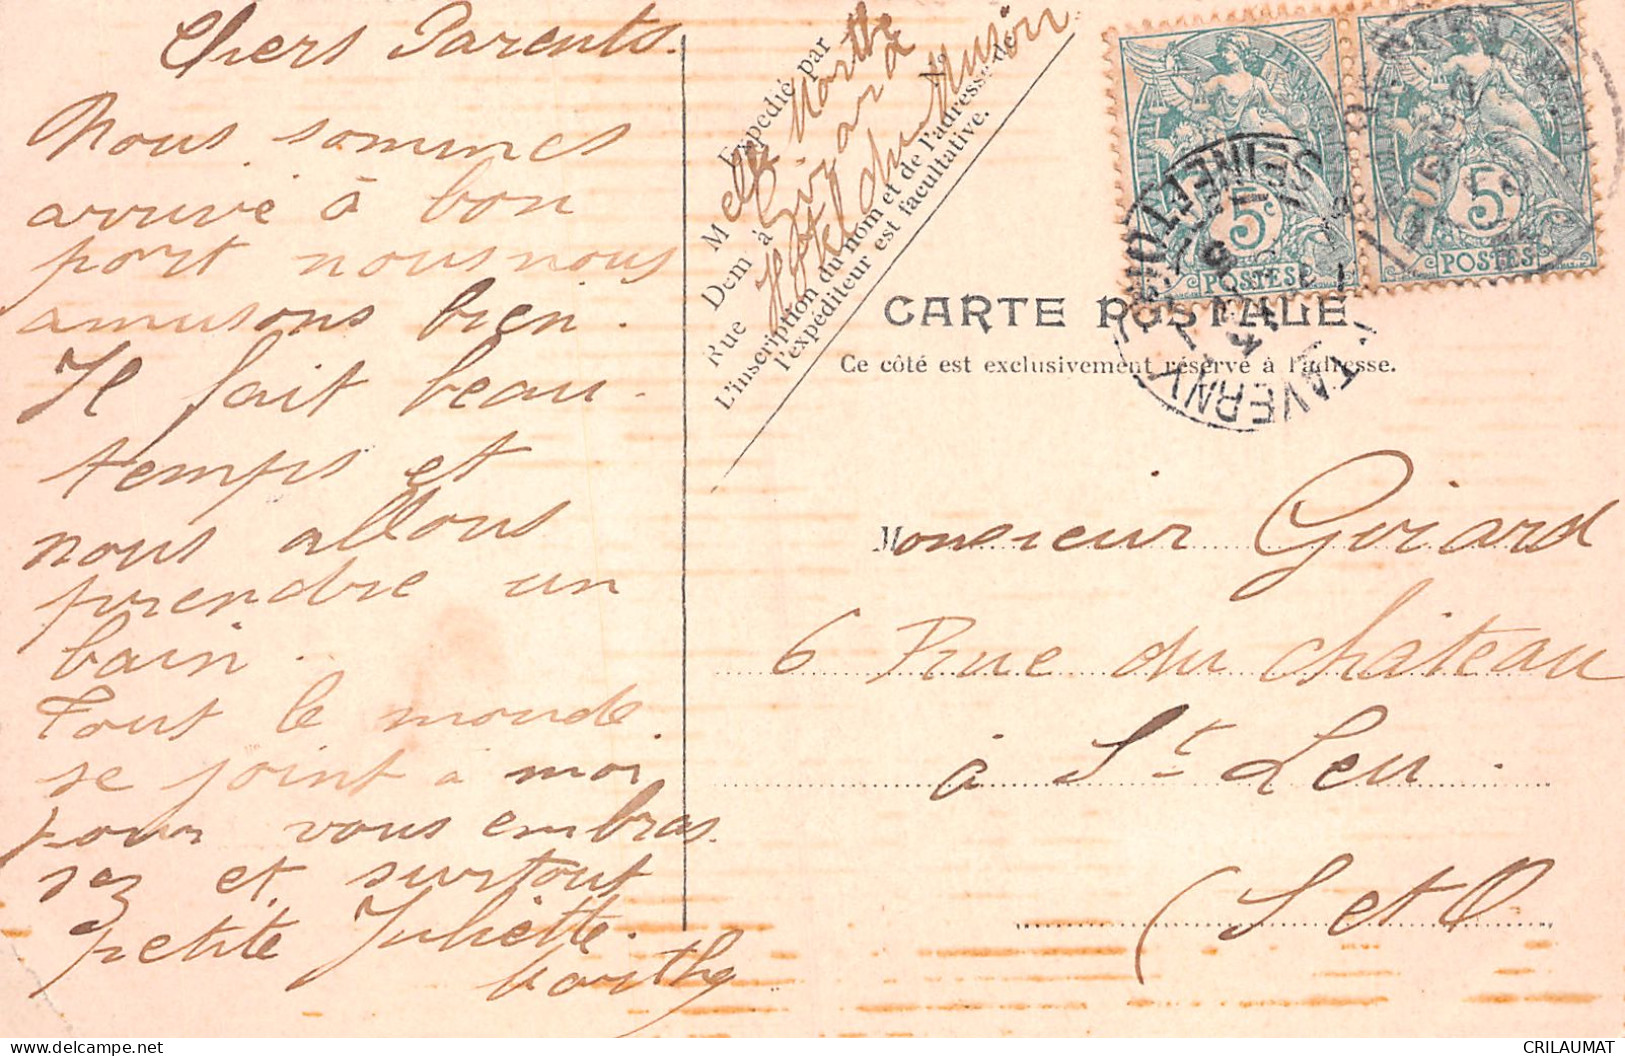 Chers Parents.
Nous sommes
arrivé à bon
port nous nous
amusons bien.
Il fait beau
temps et
nous allons
prendre un
bain.
Tout le monde
se joint a moi
pour vous embras
sez et surtout
petite Juliette.
Marthe
Expédié par
Melle Marthe
Demt à
Rue Hôtel du Musin
N°
L'inscription du nom et de l'adresse de
l'expéditeur est facultative.
CARTE POSTALE
Ce côté est exclusivement réservé à l'adresse.
Monsieur Girard
6 Rue du château
à St Leu.
(S et O
5c
POSTES
5c
POSTES
TAVERNY
SEINE ET OISE
CRILAUMAT
www.delcampe.net